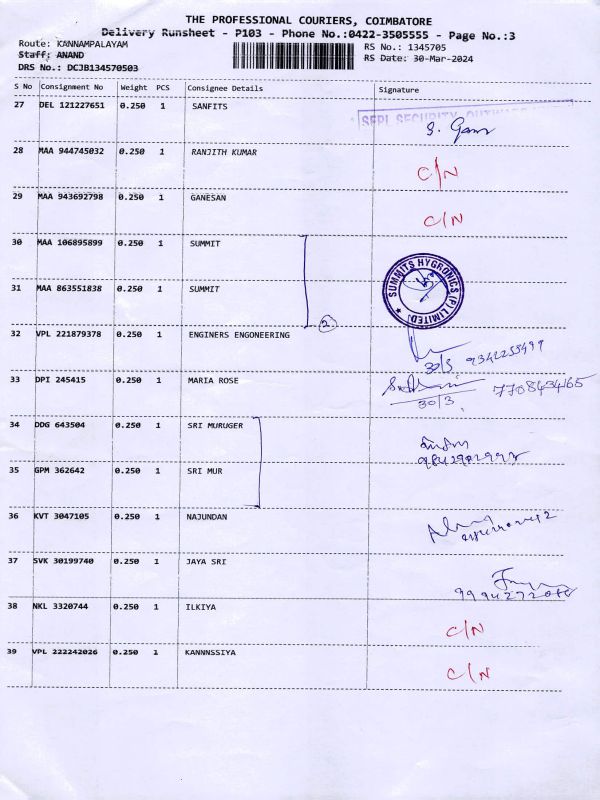 THE PROFESSIONAL COURIERS, COIMBATORE
Delivery Runsheet - P103 - Phone No.:0422-3505555 - Page No.:3
Route: KANNAMPALAYAM
RS No.: 1345705
Staff: ANAND
RS Date: 30-Mar-2024
DRS No.: DCJB134570503
S No Consignment No Weight PCS Consignee Details Signature
27 DEL 121227651 0.250 1 SANFITS
SFPL SECURITY OUTWARD
28 MAA 944745032 0.250 1 RANJITH KUMAR C/N
29 MAA 943692798 0.250 1 GANESAN C/N
30 MAA 106895899 0.250 1 SUMMIT
SUMMITS HYGRONICS (P) LIMITED
31 MAA 863551838 0.250 1 SUMMIT
2
32 VPL 221879378 0.250 1 ENGINERS ENGONEERING
30/3 9342255499
33 DPI 245415 0.250 1 MARIA ROSE 7708434165
30/3.
34 DDG 643504 0.250 1 SRI MURUGER
35 GPM 362642 0.250 1 SRI MUR
36 KVT 3047105 0.250 1 NAJUNDAN
37 SVK 30199740 0.250 1 JAYA SRI
38 NKL 3320744 0.250 1 ILKIYA C/N
39 VPL 222242026 0.250 1 KANNNSSIYA C/N